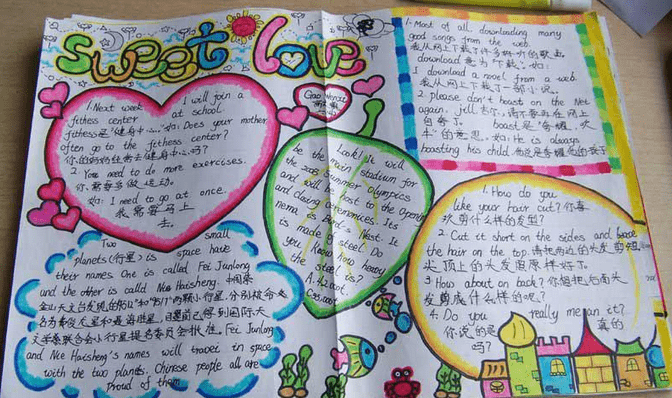 sweet love
1. Next week I will join a
fitness center at school
fitness是"健身中心"。如: Does your mother
often go to the fitness center?
你的妈妈经常去健身中心吗?
2. You need to do more exercises.
你需要多做运动。
如: I need to go at once.
我需要马上
走。
Look! It will
be the main stadium for
the 2008 Summer Olympics
and will be host to the Opening
and Closing ceremonies. Its
nema is Bird's Nest. It
is made of steel. Do
you know how heavy
the steel is?
A. 42,000t.
1. Most of all downloading many
good songs from the web.
我从网上下载了许多好听的歌曲
download 意为"下载". 如:
I download a novel from a web.
我从网上下载了一部小说。
2. please don't boast on the Net
again, jill 吉尔, 请不要再在网上
自夸了. boast是"夸耀, 吹
牛"的意思. 如: He is always
boasting his child.
1. How do you
like your hair cut? 你喜
欢剪什么样的发型?
2. Cut it short on the sides and
the hair on the top. 请把两边的头发剪短
头顶上的头发照原样好了.
3. How about on back? 你想把后面头
发剪成什么样的呢?
4. Do you really mean it?
你说的是 真的
吗?
Two small
planets (行星) in space have
their names One is called Fei Junlong
and the other is called Nie Haisheng. 中国紫
金山天文台发现的 两颗小行星, 分别被命
名为费俊龙星和聂海胜星,
文学联合会小行星提名委员会批准. Fei Junlong
and Nie Haisheng's names will travel in space
with the two plants. Chinese people all are
proud of them